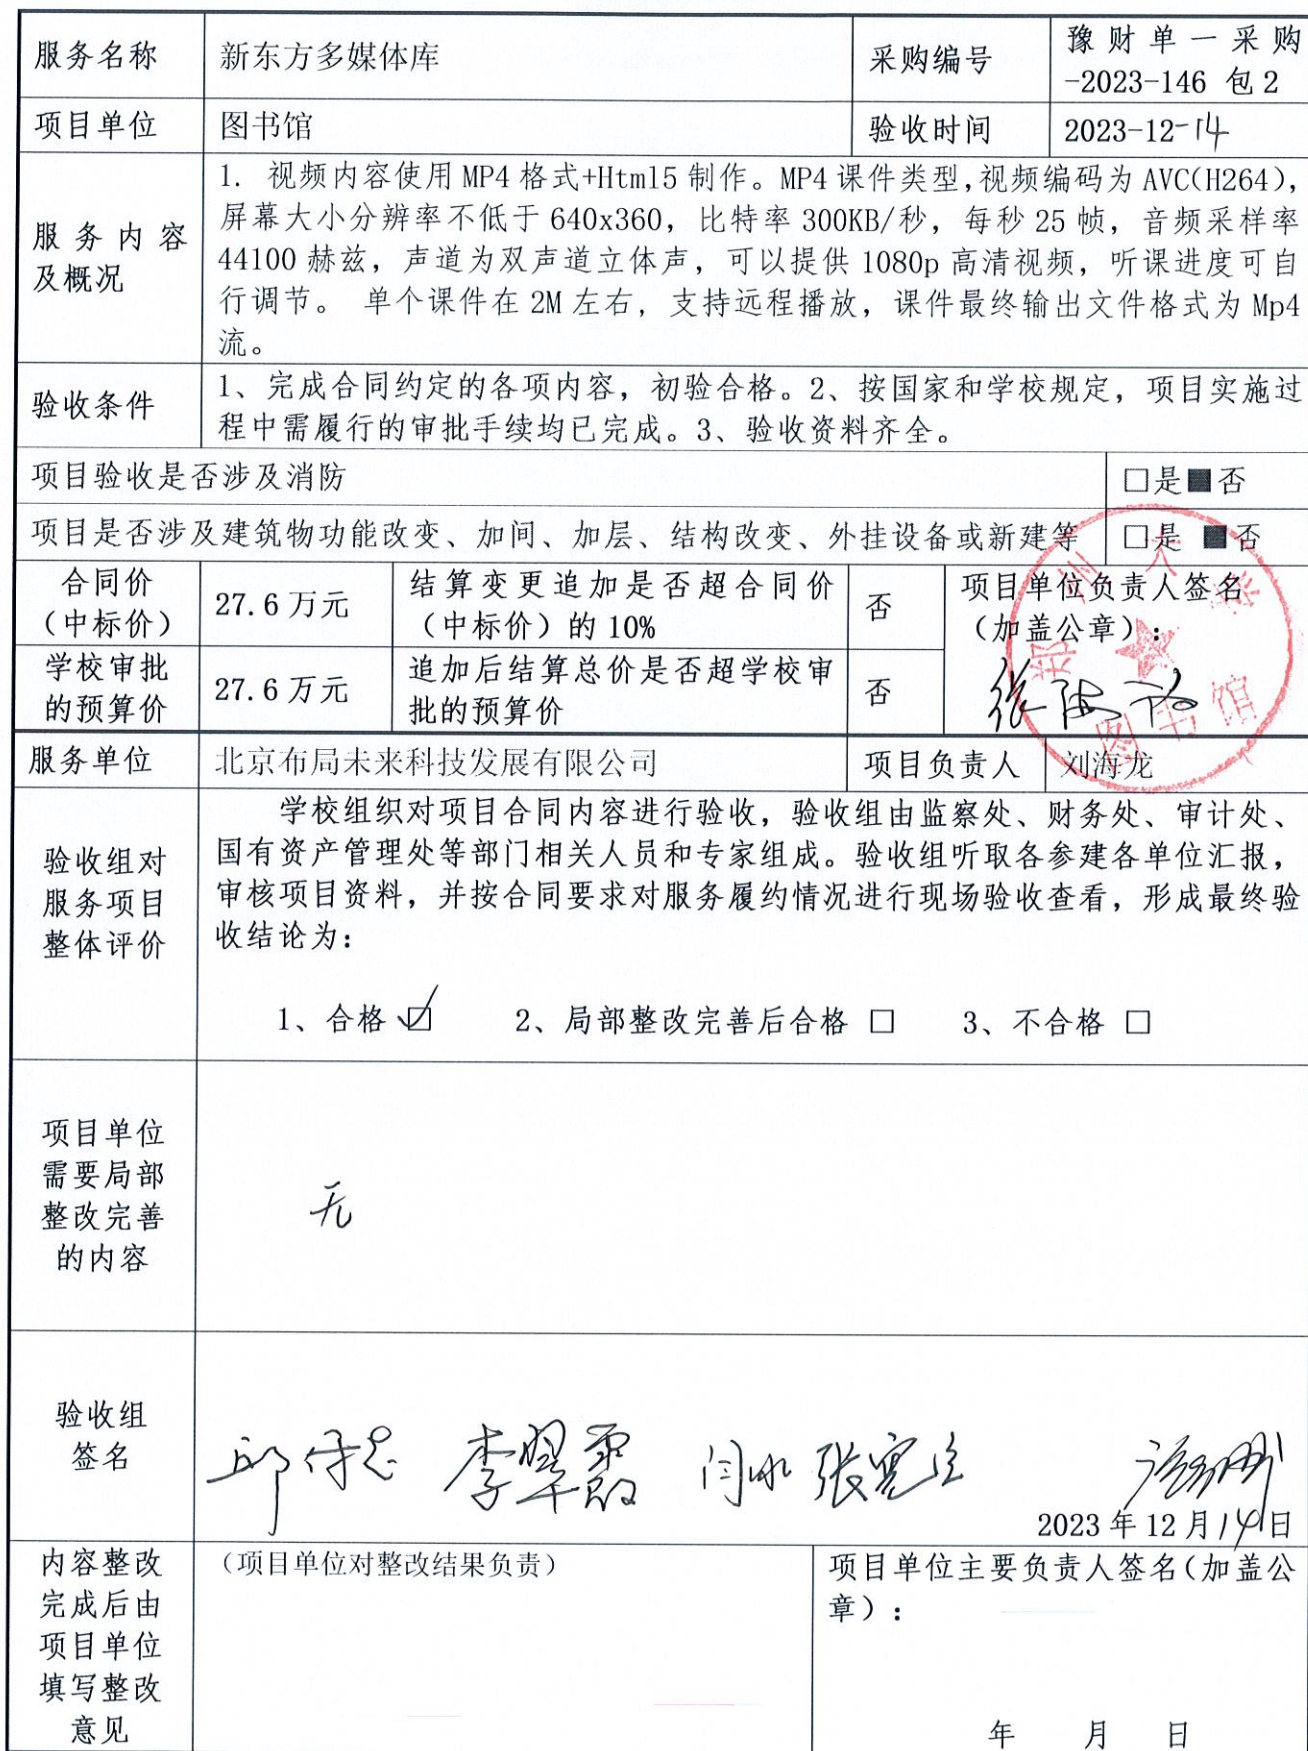 服务名称 新东方多媒体库 采购编号 豫财单一采购
-2023-146 包2
项目单位 图书馆 验收时间 2023-12-14
服务内容
及概况
1. 视频内容使用MP4格式+Html5制作。MP4课件类型,视频编码为AVC(H264),
屏幕大小分辨率不低于640x360，比特率300KB/秒，每秒25帧，音频采样率
44100赫兹，声道为双声道立体声，可以提供1080p高清视频，听课进度可自
行调节。 单个课件在2M左右，支持远程播放，课件最终输出文件格式为Mp4
流。
验收条件
1、完成合同约定的各项内容，初验合格。2、按国家和学校规定，项目实施过
程中需履行的审批手续均已完成。3、验收资料齐全。
项目验收是否涉及消防 □是■否
项目是否涉及建筑物功能改变、加间、加层、结构改变、外挂设备或新建等 □是 ■否
合同价
（中标价）
27.6万元
结算变更追加是否超合同价
（中标价）的10%
否
项目单位负责人签名
（加盖公章）：
郑州大学
图书馆
学校审批
的预算价
27.6万元
追加后结算总价是否超学校审
批的预算价
否
服务单位 北京布局未来科技发展有限公司 项目负责人 刘海龙
验收组对
服务项目
整体评价
学校组织对项目合同内容进行验收，验收组由监察处、财务处、审计处、
国有资产管理处等部门相关人员和专家组成。验收组听取各参建各单位汇报，
审核项目资料，并按合同要求对服务履约情况进行现场验收查看，形成最终验
收结论为：
1、合格 ☑ 2、局部整改完善后合格 □ 3、不合格 □
项目单位
需要局部
整改完善
的内容
无
验收组
签名
李翠霞 闫冰
2023年12月14日
内容整改
完成后由
项目单位
填写整改
意见
（项目单位对整改结果负责）
项目单位主要负责人签名(加盖公
章）：
年 月 日